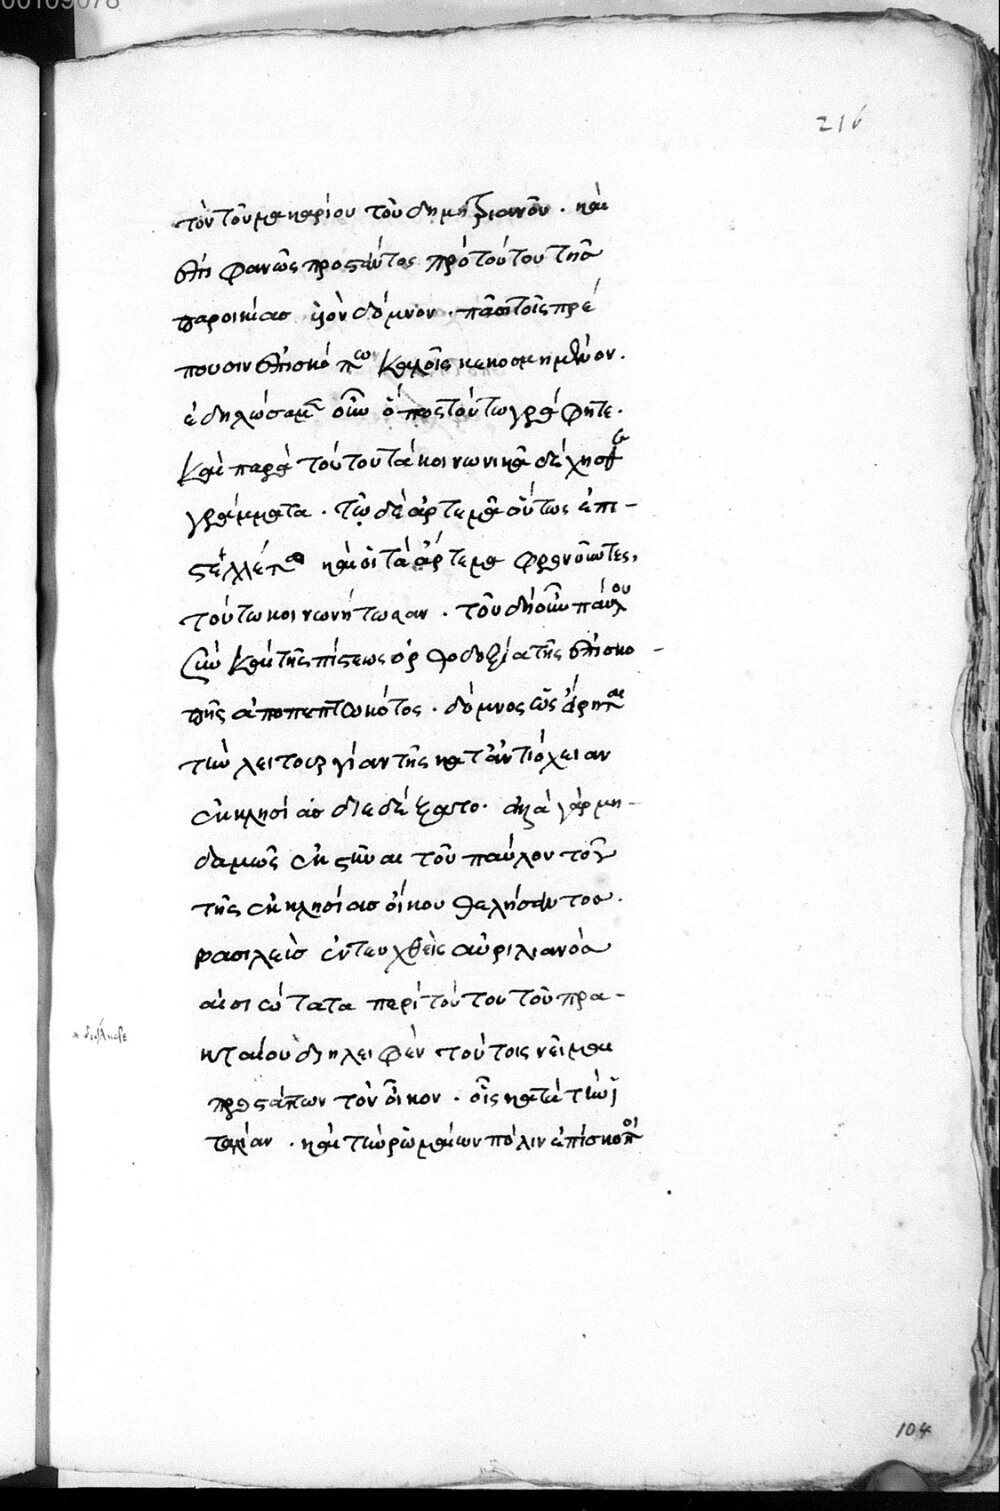 00109078
216
τὸν τοῦ μακαρίου τοῦ δημητριανοῦ . καὶ
ἐπιφανῶς προστάντος πρὸ τούτου τῆς
παροικίας υἱὸν δόμνον . πᾶσι τοῖς πρέ
πουσιν ἐπισκόπω καλοῖς κεκοσμημένον .
ἐδηλώσαμεν οὖν ὅπως τούτω γράφητε .
καὶ παρὰ τούτου τὰ κοινωνικὰ δέχησθε
γράμματα . τῷ δὲ ἀρτεμᾶ οὗτος ἐπι-
στελλέτω καὶ οἱ τὰ ἀρτεμᾶ φρονοῦντες ,
τούτω κοινωνήτωσαν . τοῦ δὴ οὖν παύλου
σὺν καὶ τῆς πίστεως ὀρθοδοξία τῆς ἐπισκο-
πῆς ἀποπεπτωκότος . δόμνος ὡς εἴρηται
τὴν λειτουργίαν τῆς κατ' ἀντιόχειαν
ἐκκλησίας διεδέξατο . ἀλλὰ γὰρ μη-
δαμῶς ἐκστῆναι τοῦ παύλου τοῦ
τῆς ἐκκλησίας οἴκου θελήσαντος .
βασιλεὺς ἐντευχθεὶς αὐριλιανὸς
αἰσιώτατα περὶ τούτου τοῦ πρα-
κταίου διηλειφεν τούτοις νεῖμαι
προστάττων τὸν οἶκον . οἷς κατὰ τὴν ἰ
ταλίαν . καὶ τὴν ῥωμαίων πόλιν ἐπίσκοποι
104